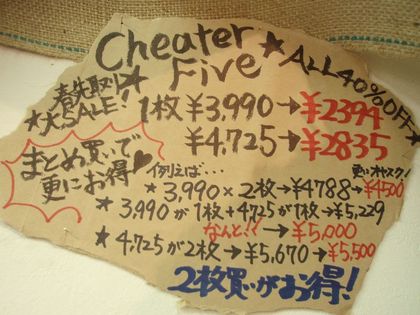 Cheater
Five
★ALL40%OFF★
春先取り★
★大SALE!
1枚 ¥3,990→¥2394
¥4,725→¥2835
まとめ買いで
更にお得♥
例えば…
更にオトク!
★3,990×2枚→¥4788→¥4500
★3,990が1枚+4725が1枚→¥5,229
なんと!!→¥5,000
★4,725が2枚→¥5,670→¥5,500
2枚買いがお得!